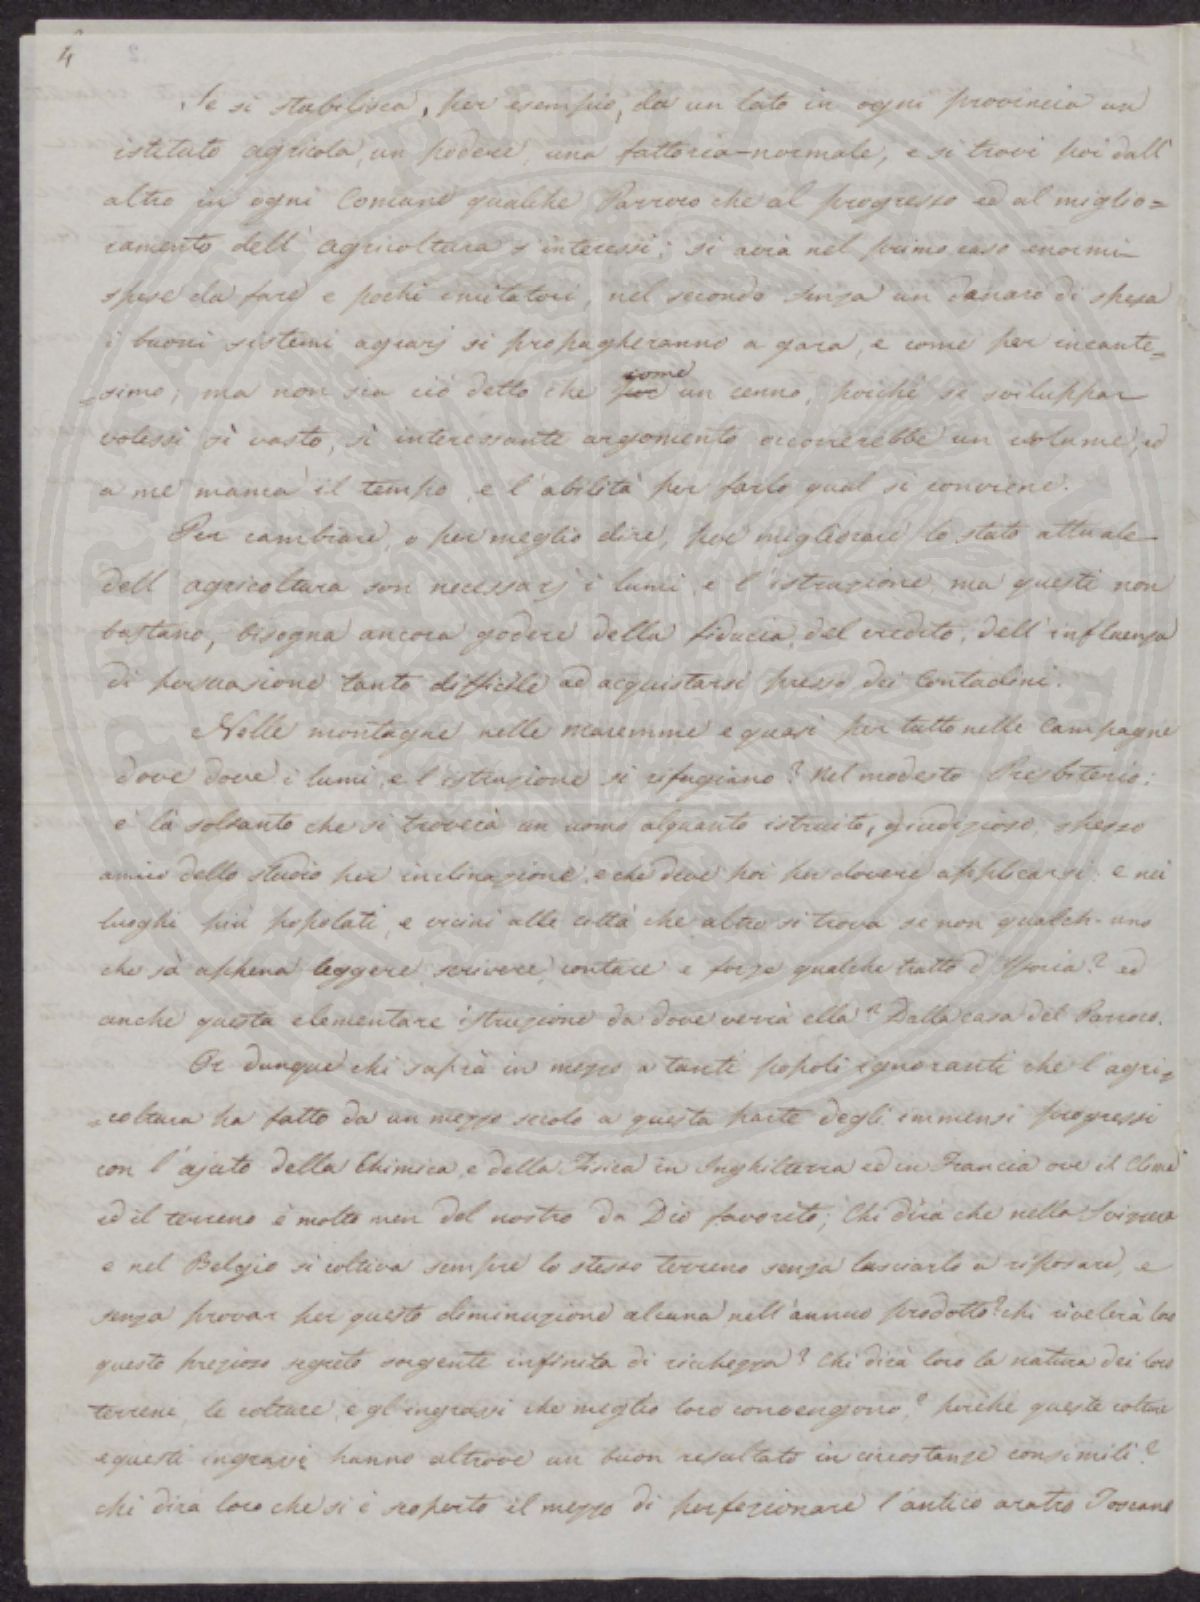 4
Se si stabilisca, per esempio, da un lato in ogni provincia un
istituto agricola, un podere, una fattoria-normale, e si trovi poi dall'
altro in ogni Comune qualche Parroco che al progresso ed al miglio=
ramento dell' agricoltura s'interessi; si avrà nel primo caso enormi
spese da fare e pochi imitatori, nel secondo senza un danaro di spesa
i buoni sistemi agrarj si propagheranno a gara, e come per incante=
=simo; ma non sia ciò detto che come un cenno, poichè se sviluppar
volessi sì vasto, sì interessante argomento occorrerebbe un volume, ed
a me manca il tempo, e l'abilità per farlo qual si conviene.
Per cambiare, o per meglio dire, per migliorare lo stato attuale
dell'agricoltura son necessarj i lumi e l'istruzione, ma questi non
bastano, bisogna ancora godere della fiducia, del credito, dell'influenza
di persuasione tanto difficile ad acquistarsi presso dei Contadini.
Nelle montagne nelle maremme e quasi per tutto nelle Campagne
dove dove i lumi, e l'istruzione si rifugiano? Nel modesto Presbiterio:
è là soltanto che si troverà un uomo alquanto istruito, giudizioso, spesso
amico dello studio per inclinazione, e che deve poi per dovere applicarsi: e nei
luoghi più popolati, e vicini alle città che altro si trova se non qualch-uno
che sà appena leggere, scrivere, contare e forse qualche tratto d'Istoria? ed
anche questa elementare istruzione da dove verrà ella? Dalla casa del Parroco.
Or dunque chi saprà in mezzo a tanti popoli ignoranti che l'agri=
=coltura ha fatto da un mezzo secolo a questa parte degli immensi progressi
con l'ajuto della Chimica, e della Fisica in Inghilterra ed in Francia ove il Clima
ed il terreno è molto men del nostro da Dio favorito; Chi dirà che nella Svizzera
e nel Belgio si coltiva sempre lo stesso terreno senza lasciarlo a riposare, e
senza provar per questo diminuzione alcuna nell'annuo prodotto? chi rivelerà loro
questo prezioso segreto sorgente infinita di ricchezza? Chi dirà loro la natura dei loro
terreni, le colture, e gl'ingrassi che meglio loro convengono? perchè queste colture
e questi ingrassi hanno altrove un buon resultato in circostanze consimili?
chi dirà loro che si è scoperto il mezzo di perfezionare l'antico aratro Toscano